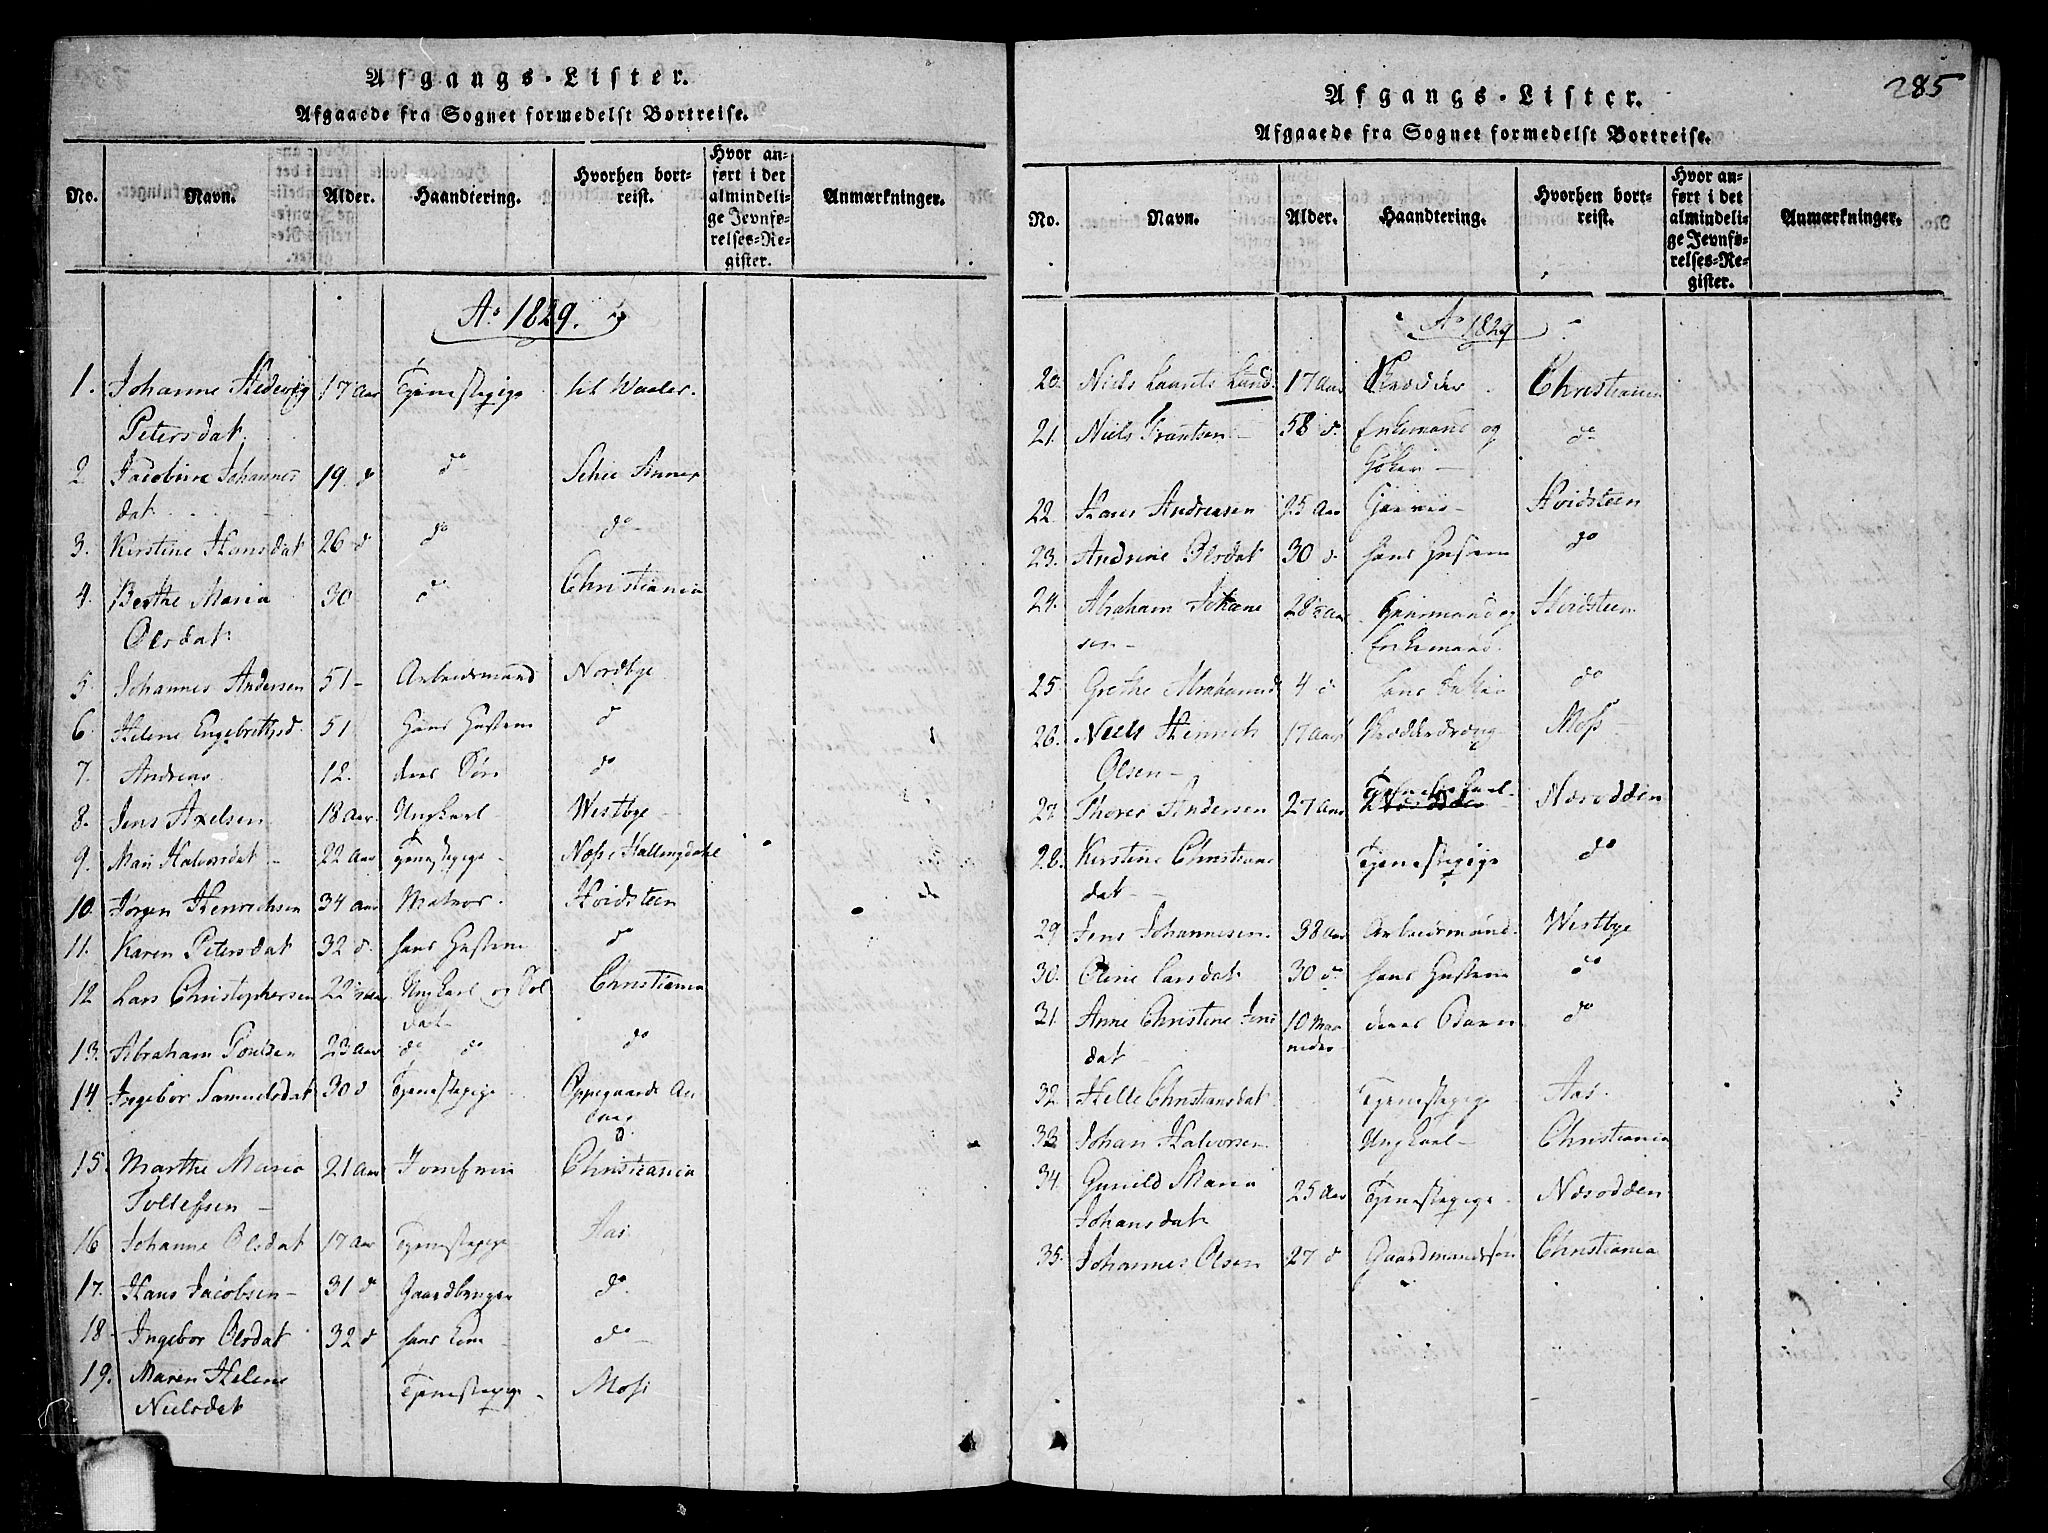 Afgangs-Lister.
Afgaaede fra Sognet formedelst Bortreise.
No. Navn. Alder. Haandtering. Hvorhen bortreist. Hvor anført i det almindelige Jevnførelses-Register. Anmærkninger.
Ao 1829.
1. Johanne Hedevig 17 Aar Tjenestepige til Waaler.
Petersdat.
2 Jacobine Johannes 19. do do Schie Annex
dat
3. Kirstine Hansdat 26 do do do
4. Berthe Maria 30 do Christiania
Olsdat.
5. Johannes Andersen 51 - Arbeidsmand Nordbye
6. Helene Engebretsd. 51. Hans Hustrue do
7. Andreas 12. deres Søn do
8. Jens Axelsen 18 Aar. Ungkarl Westbye
9. Mari Halvorsdat - 22 Aar Tjenestepige - Næss i Hallingdahl
10. Jørgen Henrichsen 34 Aar Matros. Hvidsteen
11. Karen Petersdat 32 do hans Hustrue do
12 Lars Christophersen 22 1/2 Aar Ungkarl og Sol Christiania
dat
13. Abraham Poulsen 23 Aar do do do
14. Ingebor Samuelsdat 30 do Tjenestepige Oppegaards An
15. Marthe Maria 21 Aar Jomfrue Christiania
Tollefsen -
16 Johanne Olsdat 17 Aar Tjenestepige Aas.
17. Hans Jacobsen - 31 do Gaardbruger do.
18 Ingebor Olsdat 32 do hans Kone do -
19. Maren Helene Tjenestepige - Moss
Nielsdat
285
Afgangs-Lister.
Afgaaede fra Sognet formedelst Bortreise.
No. Navn. Alder. Haandtering. Hvorhen bortreist. Hvor anført i det almindelige Jevnførelses-Register. Anmærkninger.
Ao 1829
20. Niels Laurits Lund. 17 Aar Skrædder Christiania
21. Niels Frantsen - 58 do. Enkemand og do
22. Hans Andreasen 25 Aar Hvidsteen
23. Andrine Olsdat 30 do hans Hustrue do
24. Abraham Johane 28 1/2 Aar Tjenesmand og Hvidsteen
sen - Enkemand.
25. Grethe Abrahamsd 4 do do
26. Niels Henrich 17 Aar Skrædderdreng Moss
Olsen -
27. Thorer Andersen 27 Aar Tjenestekarl. Næsodden
28. Kirstine Christians Tjenestepige do
dat -
29 Jens Johannesen. 38 Aar Arbeidsmand. Westbye
30. Oline Larsdat 30 do hans Hustrue do
31. Anne Christine Jens 10 Maa deres Barn do
dat neder
32. Helle Christiansdat Tjenestepige Aas.
33 Johan Halvorsen Ungkarl - Christiania
34. Gunild Maria 25 Aar Tjenestepige Næsodden
Johansdat
35. Johannes Olsen 27 do Gaardmandssøn Christiania